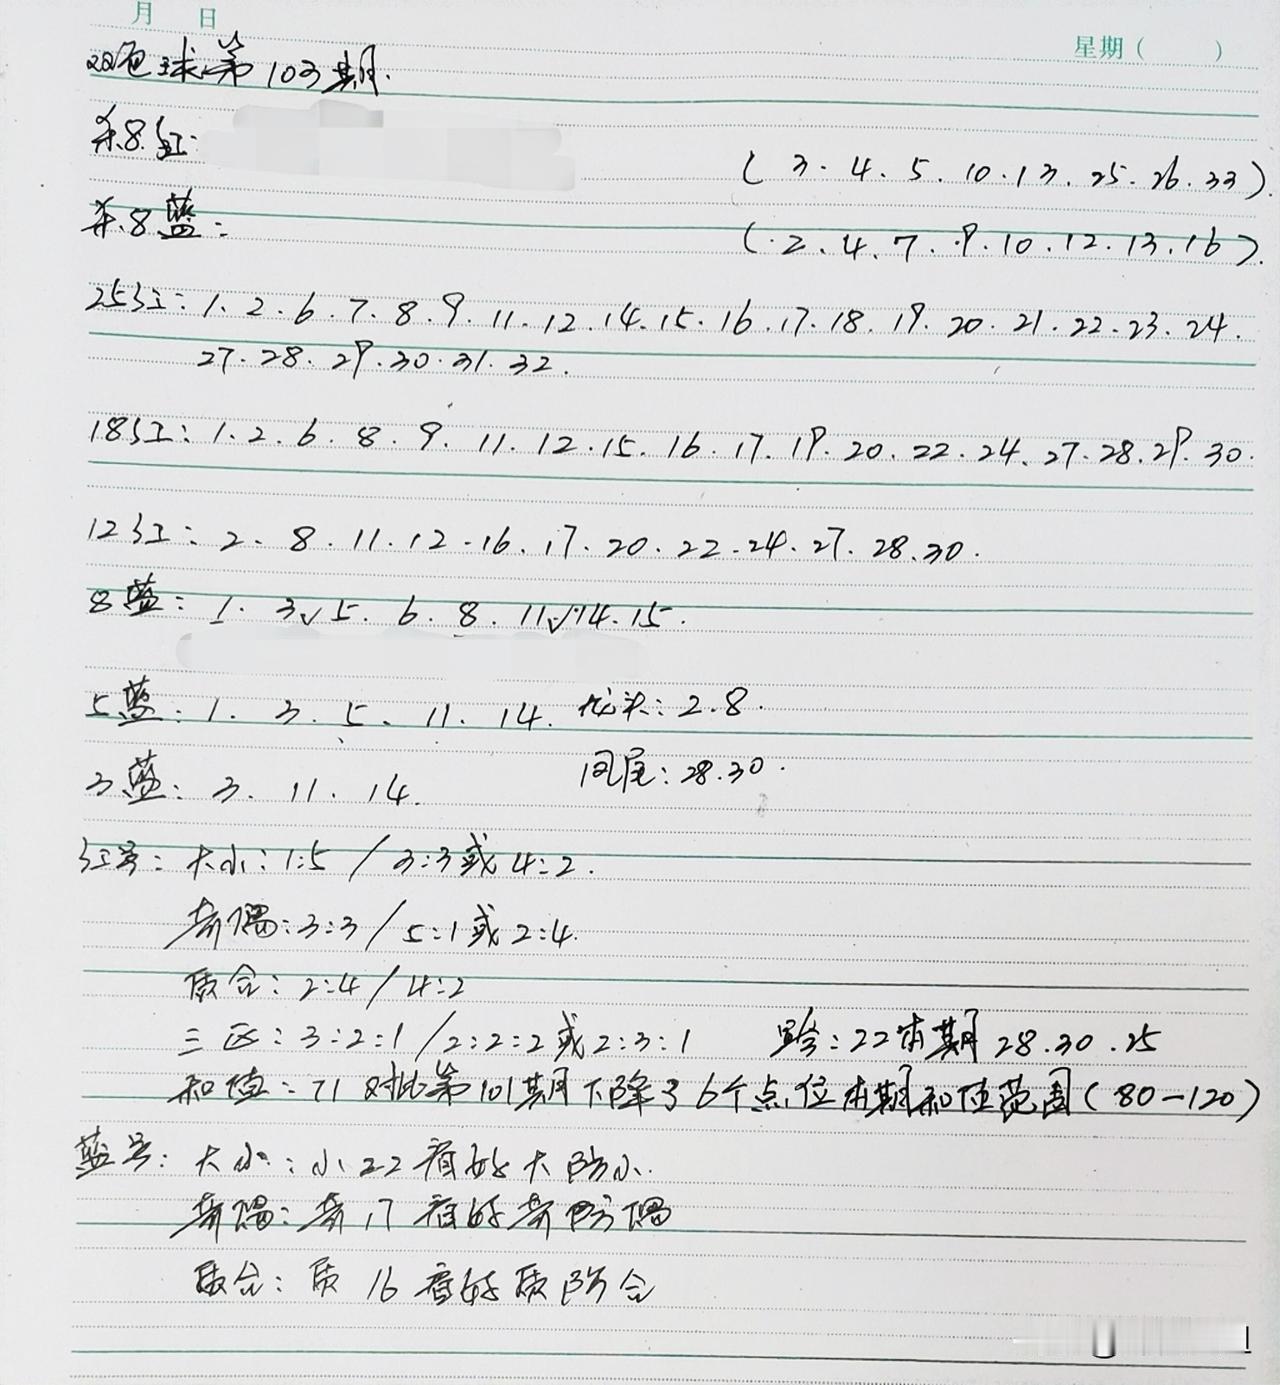 月 日
星期( )
双色球第103期.
杀8红: (3.4.5.10.13.25.26.33).
杀8蓝: (2.4.7.9.10.12.13.16).
25红:1.2.6.7.8.9.11.12.14.15.16.17.18.19.20.21.22.23.24.
27.28.29.30.31.32.
18红:1.2.6.8.9.11.12.15.16.17.19.20.22.24.27.28.29.30.
12红:2.8.11.12.16.17.20.22.24.27.28.30.
8蓝:1.3√5.6.8.11√14.15.
5蓝:1.3.5.11.14. 龙头:2.8.
凤尾:28.30.
3蓝:3.11.14.
红号:大小:1:5/3:3或4:2.
奇偶:3:3/5:1或2:4.
质合:2:4/4:2
三区:3:2:1/2:2:2或2:3:1 跨:22本期28.30.25
和值:71对比第101期下降了6个点位本期和值范围(80-120)
蓝号:大小:小22看好大防小.
奇偶:奇17看好奇防偶
质合:质16看好质防合